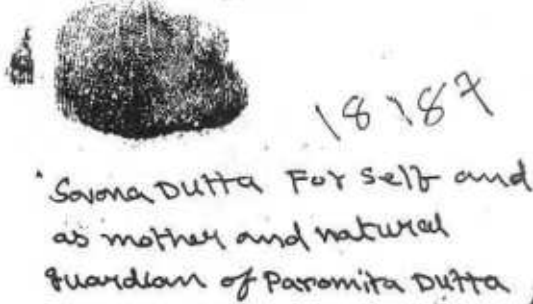 18187
Sovona Dutta For Self and
as mother and natural
guardian of Paromita Dutta